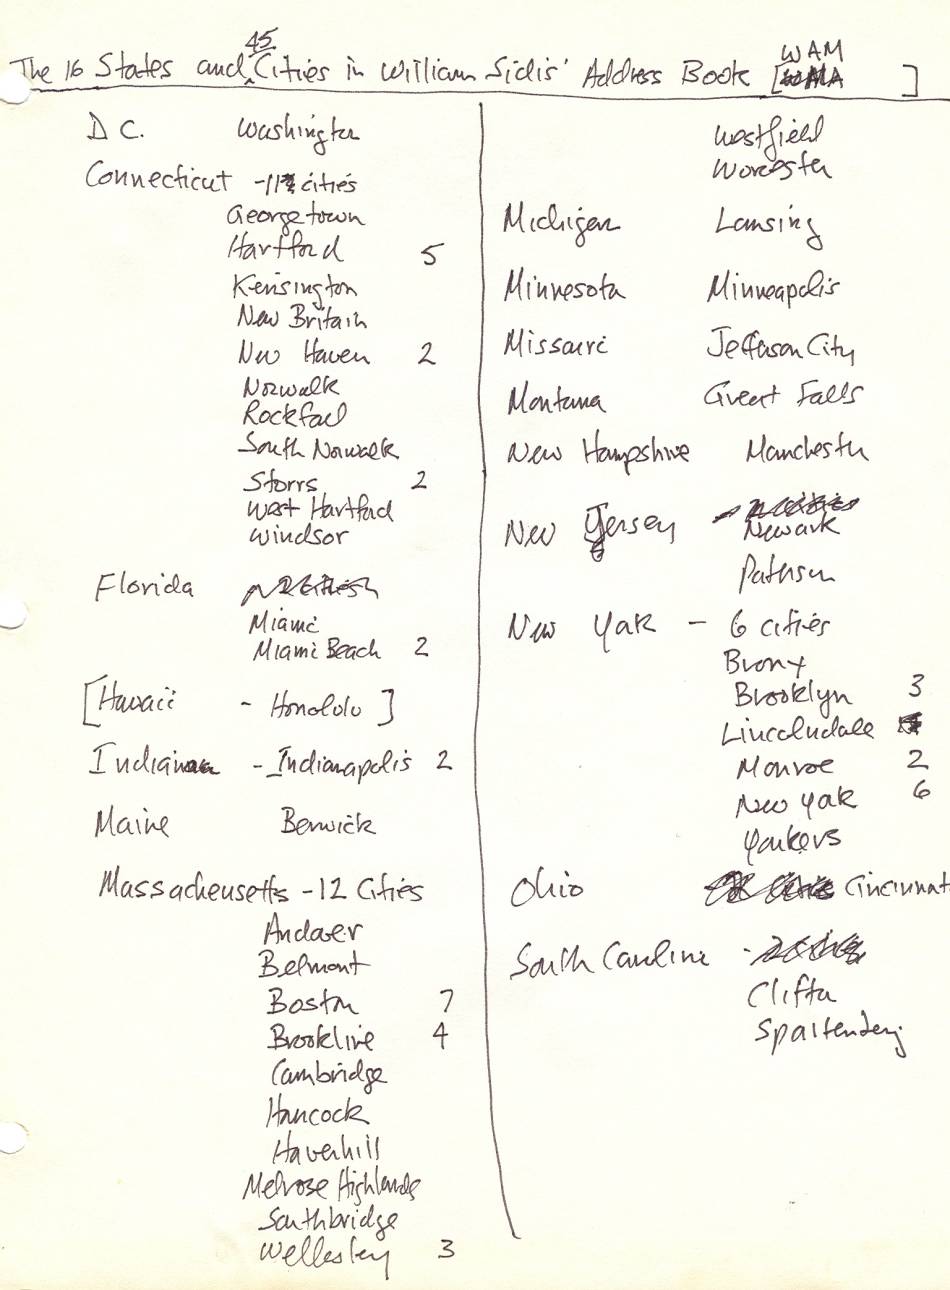 45
The 16 States and Cities in William Sidis' Address Book [ WAM ]
D C. Washington
Connecticut - 11 cities
Georgetown
Hartford 5
Kensington
New Britain
New Haven 2
Norwalk
Rockfall
South Norwalk
Storrs 2
West Hartford
Windsor
Florida
Miami
Miami Beach 2
[Hawaii - Honolulu]
Indiana - Indianapolis 2
Maine Berwick
Massacheusetts - 12 Cities
Andover
Belmont
Boston 7
Brookline 4
Cambridge
Hancock
Haverhill
Melrose Highlands
Southbridge
Wellesley 3
Westfield
Worcester
Michigan Lansing
Minnesota Minneapolis
Missouri Jefferson City
Montana Great Falls
New Hampshire Manchester
New Jersey -
Newark
Paterson
New York - 6 cities
Bronx
Brooklyn 3
Lincolndale
Monroe 2
New York 6
Yonkers
Ohio Cincinnat
South Carolina -
Clifton
Spartenberg